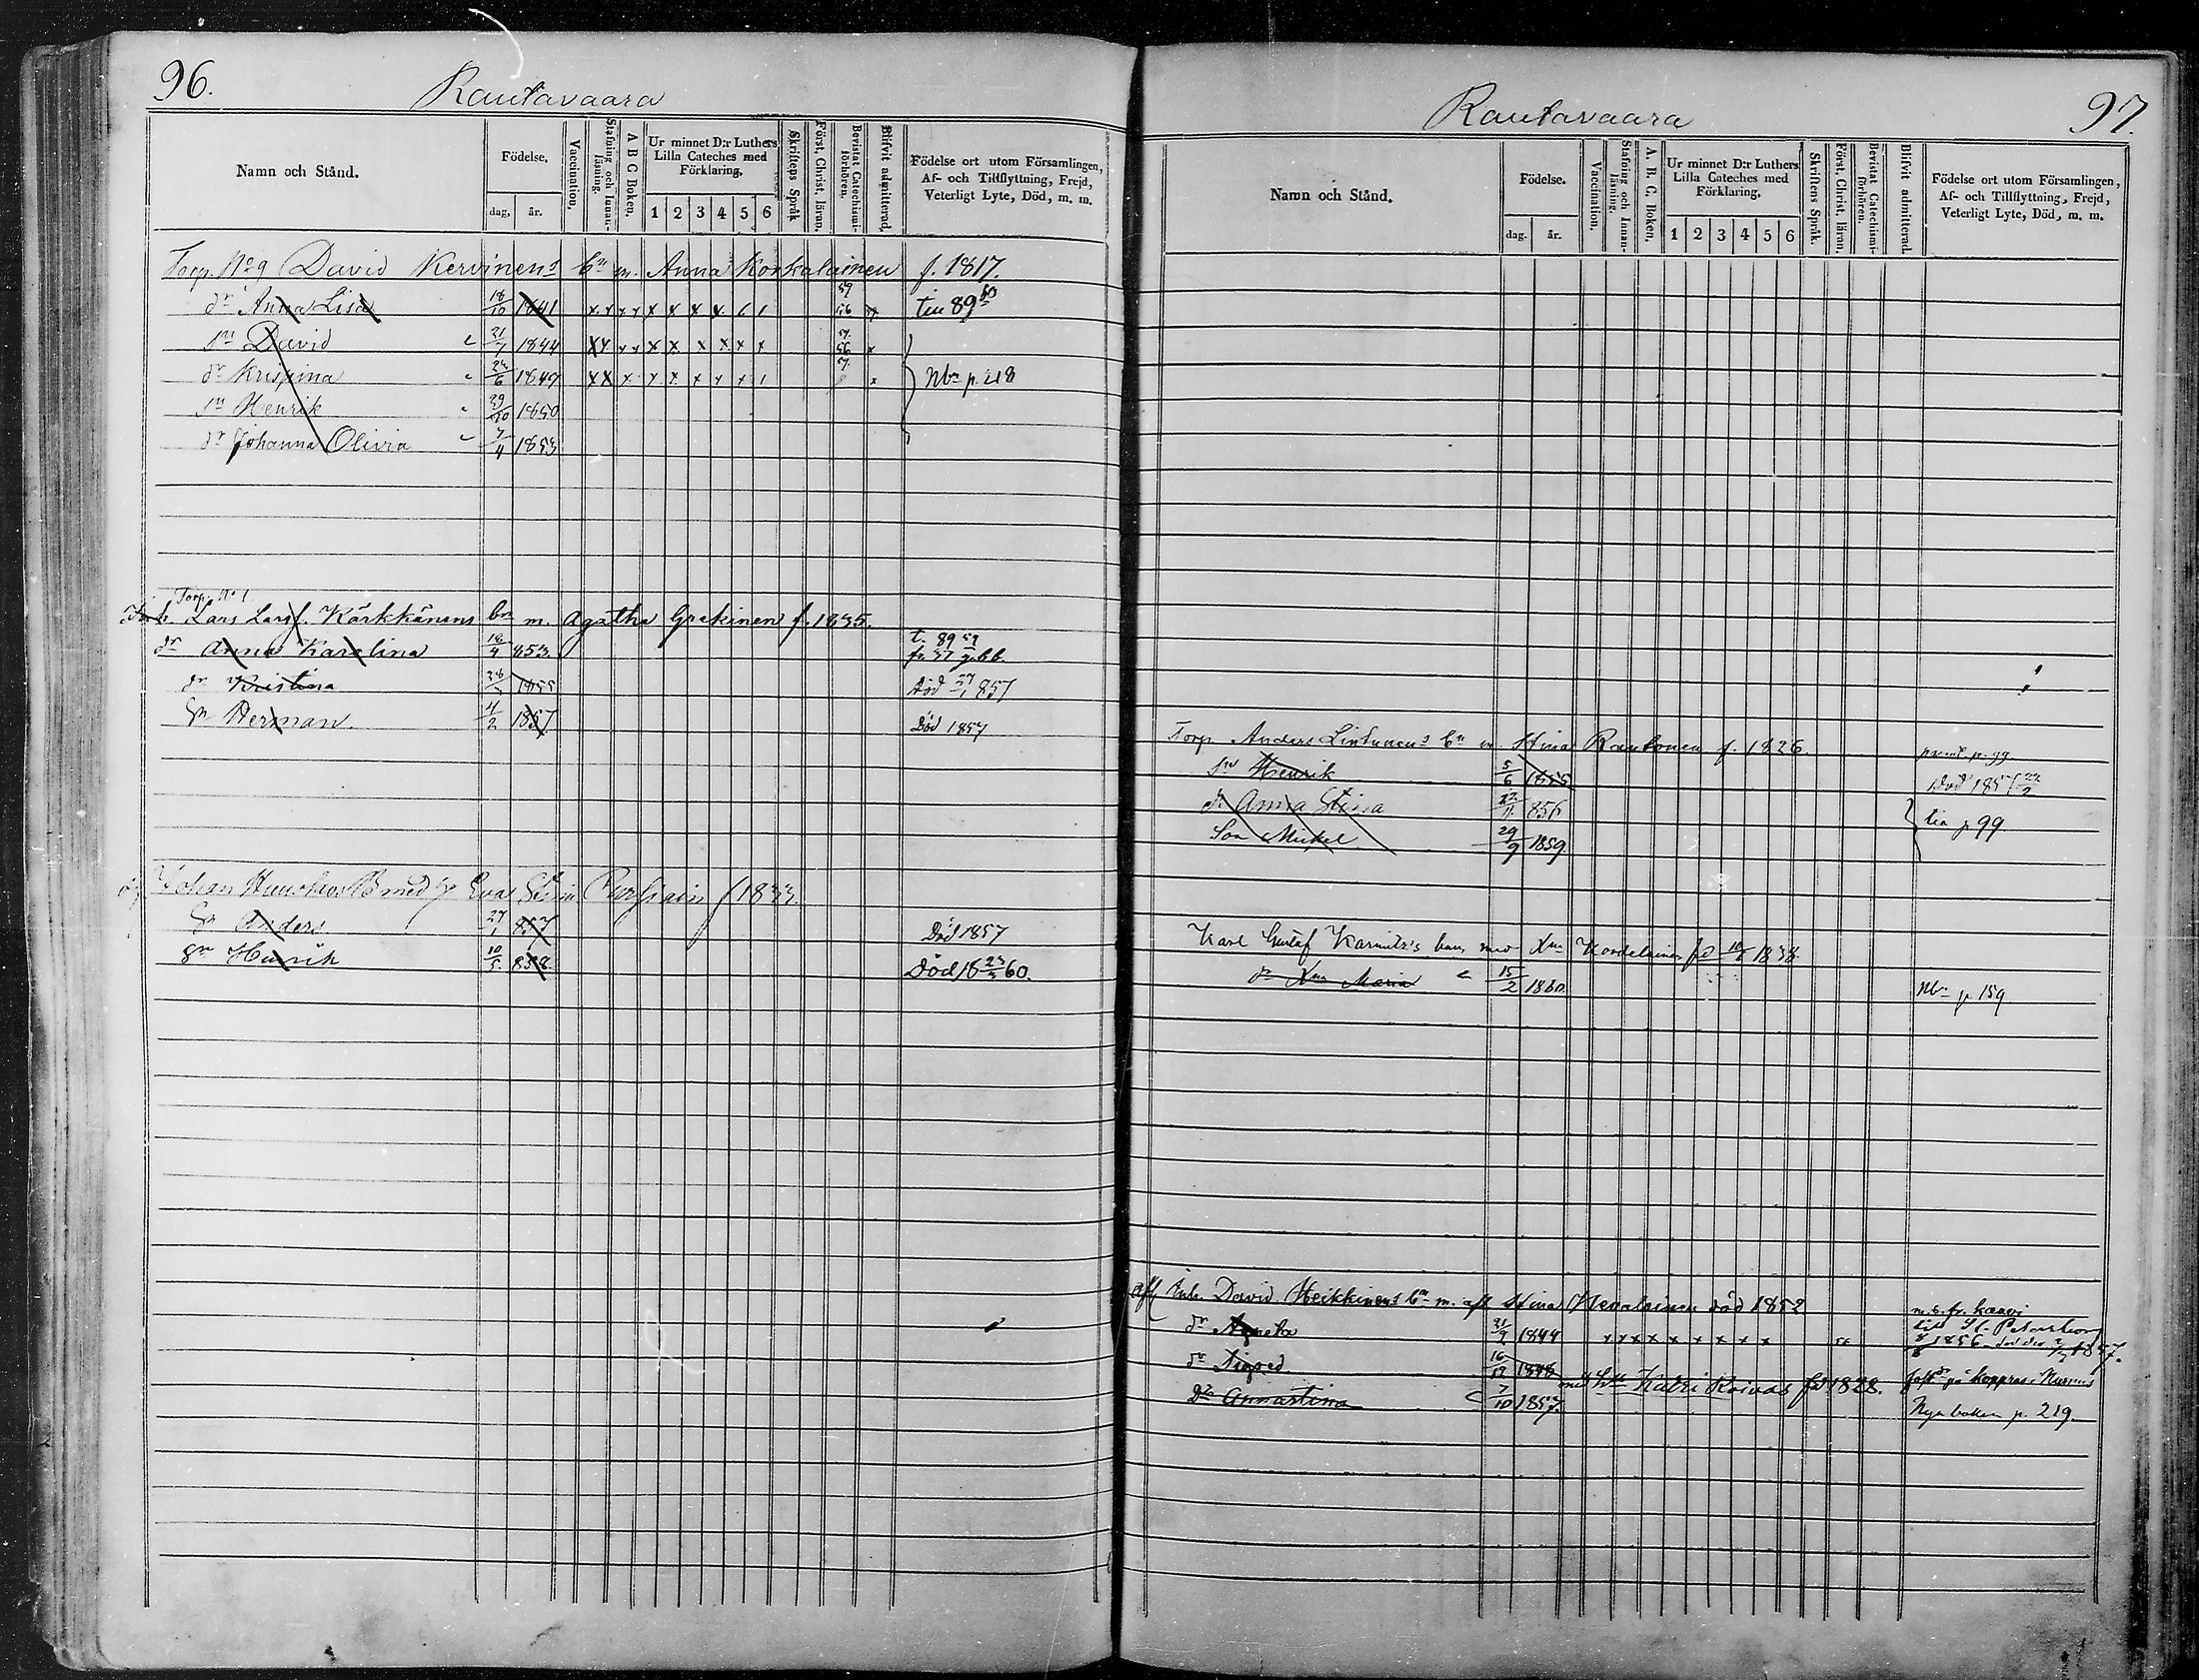 96.
Rautavaara
Namn och Stånd.
Födelse,
dag, år.
Vaccination,
Stafning och Innan-läsning.
A B C Boken,
Ur minnet D:r Luthers Lilla Cateches med Förklaring,
1 2 3 4 5 6
Skriftens Språk
Först, Christ, läran.
Bevistat Catechismi-förhören.
Blifvit admitterad,
Födelse ort utom Församlingen, Af- och Tillflyttning, Frejd, Veterligt Lyte, Död, m. m.
Torp. No 9 David Kervinens bn m. Anna Korkalainen f. 1817.
dr Anna Lisa 18/10 1841 x x x x x x x x 6 1 59 56 x till 89 60
sn David 21/7 1844 x x x x x x x x x x 57 56 x
dr Krispina 1849 x x x x x x x x 1 57 x Nbn p. 218
sn Henrik 29/10 1850
dr Johanna Olivia 7/4 1853
Torp. No 1
Lars Larsf. Kärkkänens bn m. Agatha Grekinen f. 1835.
dr Anna Karolina 18/4 853. t. 89 59
dr Kristina 1855 Död 27/1 857
Sn Herman 4/2 1857 Död 1857
Johan Eva Stina f 1833
Sn Anders 27/1 857 Död 1857
Sn Henrik 10/5. 858. Död 18 23/3 60.
Rautavaara
97.
Namn och Stånd.
Födelse.
dag. år.
Vaccination.
Stafning och Innan-läsning.
A. B. C. Boken,
Ur minnet D:r Luthers Lilla Cateches med Förklaring,
1 2 3 4 5 6
Skriftens Språk.
Först, Christ, läran.
Bevistat Catechismi-förhören.
Blifvit admitterad
Födelse ort utom Församlingen, Af- och Tillflyttning, Frejd, Veterligt Lyte, Död, m. m.
Torp Anders Lintunens bn m. Stina Rautonen f. 1826. p. 99
sn Henrik 5/6 1855 Död 1857 22/2
dr Anna Stina 856 till p 99.
Son Mickel 29/9 1859
Karl Gustaf Karmitz's barn med Xna Kordelainen 1838
dr Xna Maria 15/2 1860. Nbn p. 159
afl Inh. David Heikkinens bn m. afl Stina Nevalainen död 1852 m. b. fr. kaavi
dr Agneta 21/9 1844 x x x x x x x x x x till St. Petersborg 1856 1857.
dr Sigred 16/12 1848
med Katri Roivas född 1828.
Dr Annastina 7/10 1857. Nya boken p. 219.